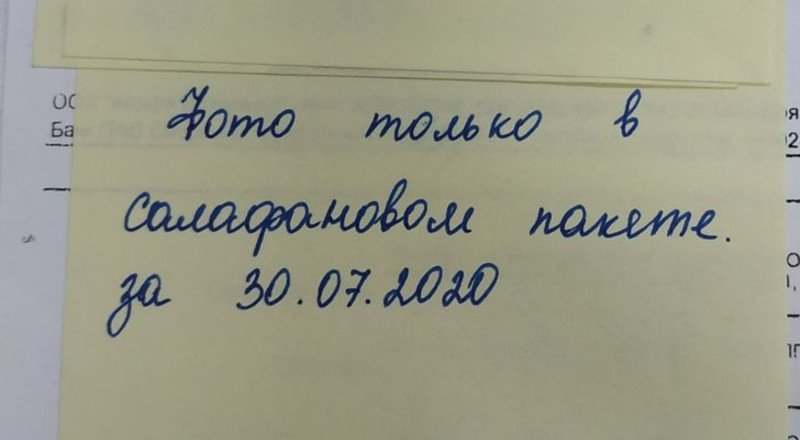 ОС
Ба
Фото только в
салафановом пакете.
за 30.07.2020